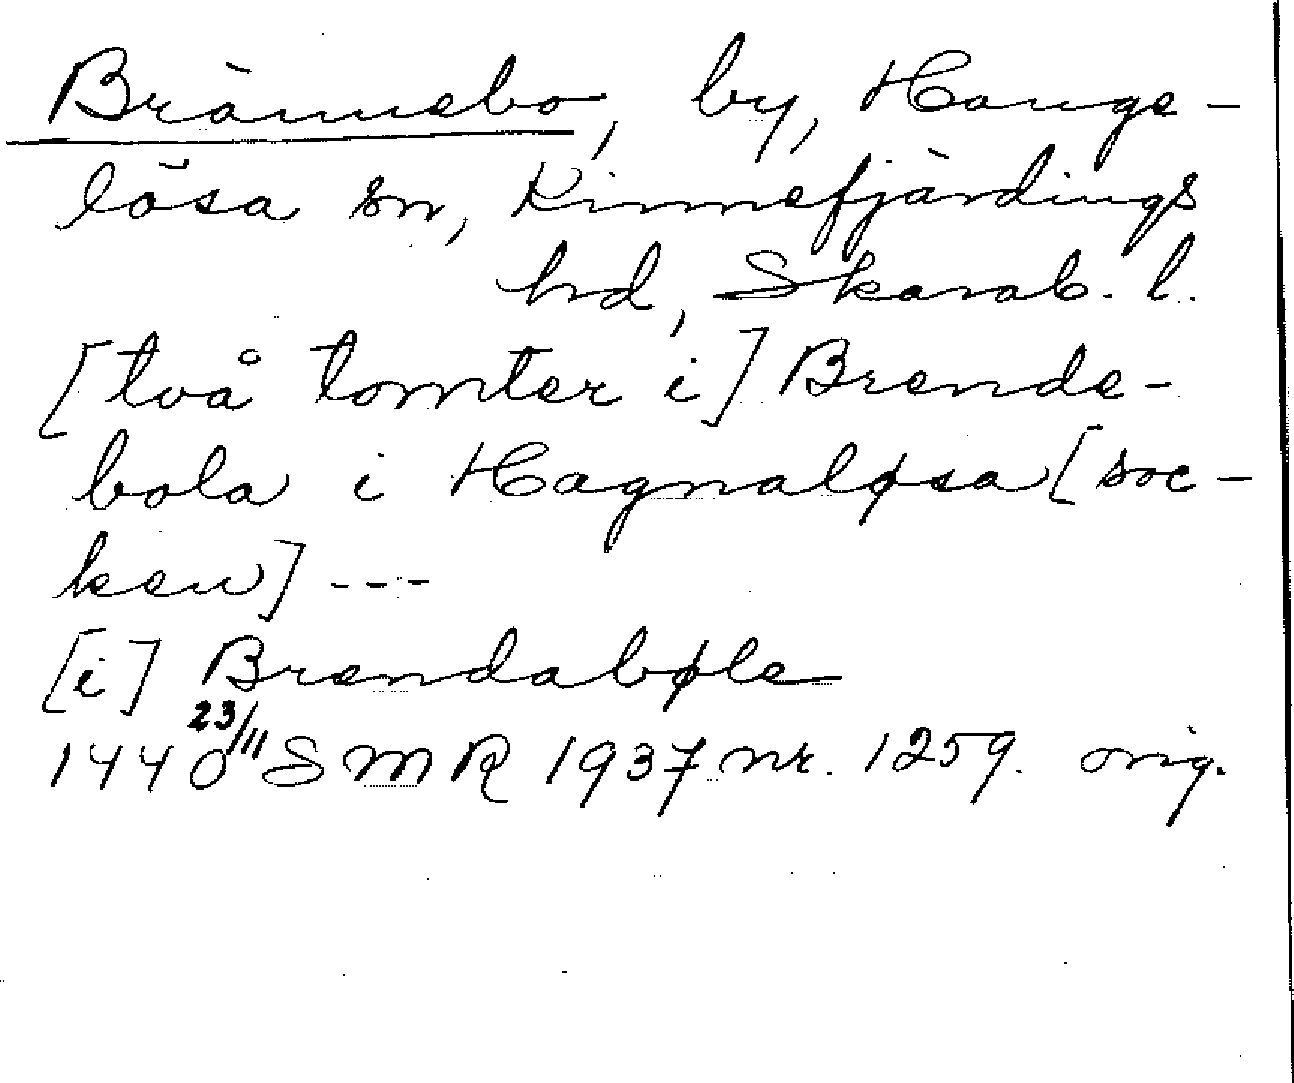 Brännebo, by, Hange-
lösa sn, Kinnefjärdings
hd, Skarab. l.
[två tomter i] Brende-
bola i Hagnaløsa [soc-
ken] ---
[i] Brendabøle
1440 23/11 SMR 1937 nr. 1259. orig.